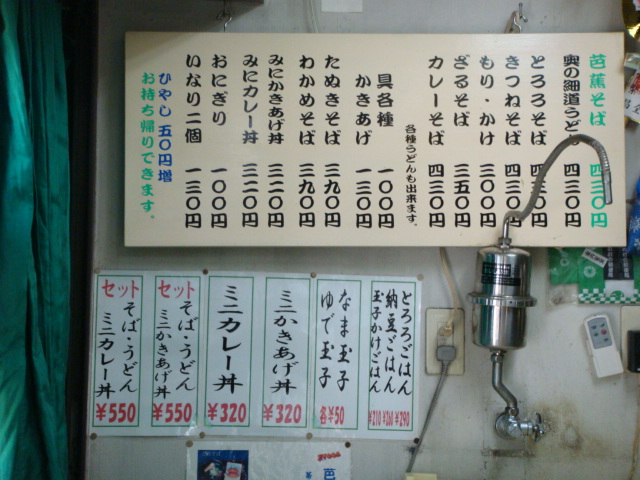 芭蕉そば 四三〇円
奥の細道うどん 四三〇円
とろろそば 四三〇円
きつねそば 四三〇円
もり・かけ 三〇〇円
ざるそば 三五〇円
カレーそば 四三〇円
各種うどんも出来ます。
具各種 一〇〇円
かきあげ 一三〇円
たぬきそば 三九〇円
わかめそば 三九〇円
みにかきあげ丼 三二〇円
みにカレー丼 三二〇円
おにぎり 一〇〇円
いなり二個 一三〇円
ひやし五〇円増
お持ち帰りできます。
とろろごはん
納豆ごはん
玉子かけごはん
¥210 ¥260 ¥290
なま玉子
ゆで玉子
各¥50
ミニかきあげ丼
¥320
ミニカレー丼
¥320
セット
そば・うどん
ミニかきあげ丼
¥550
セット
そば・うどん
ミニカレー丼
¥550
芭